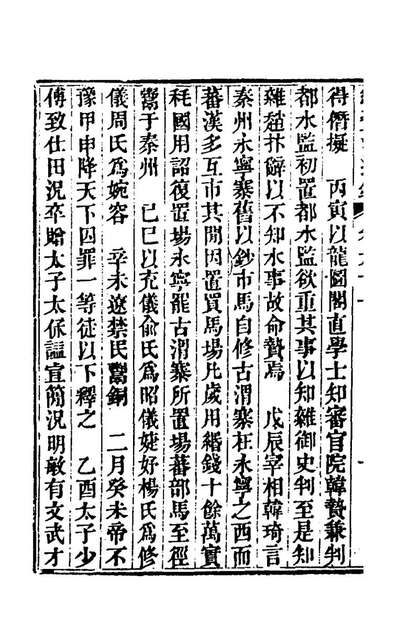 得僭擬　丙寅以龍圖閣直學士知審官院韓贄兼判
都水監初置都水監欲重其事以知雜御史判至是知
雜趙抃辭以不知水事故命贄焉　戊辰宰相韓琦言
秦州永寧寨舊以鈔市馬自修古渭寨在永寧之西而
蕃漢多互市其閒因置買馬場凡歲用緡錢十餘萬實
秏國用詔復置場永寧罷古渭寨所置場蕃部馬至徑
鬻于秦州　己巳以充儀俞氏爲昭儀婕妤楊氏爲修
儀周氏爲婉容　辛未遼禁民鬻銅　二月癸未帝不
豫甲申降天下囚罪一等徒以下釋之　乙酉太子少
傅致仕田況卒贈太子太保諡宣簡況明敏有文武才